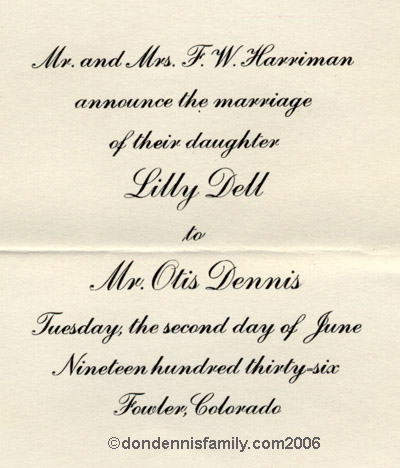 Mr. and Mrs. F. W. Harriman
announce the marriage
of their daughter
Lilly Dell
to
Mr. Otis Dennis
Tuesday, the second day of June
Nineteen hundred thirty-six
Fowler, Colorado
©dondennisfamily.com2006